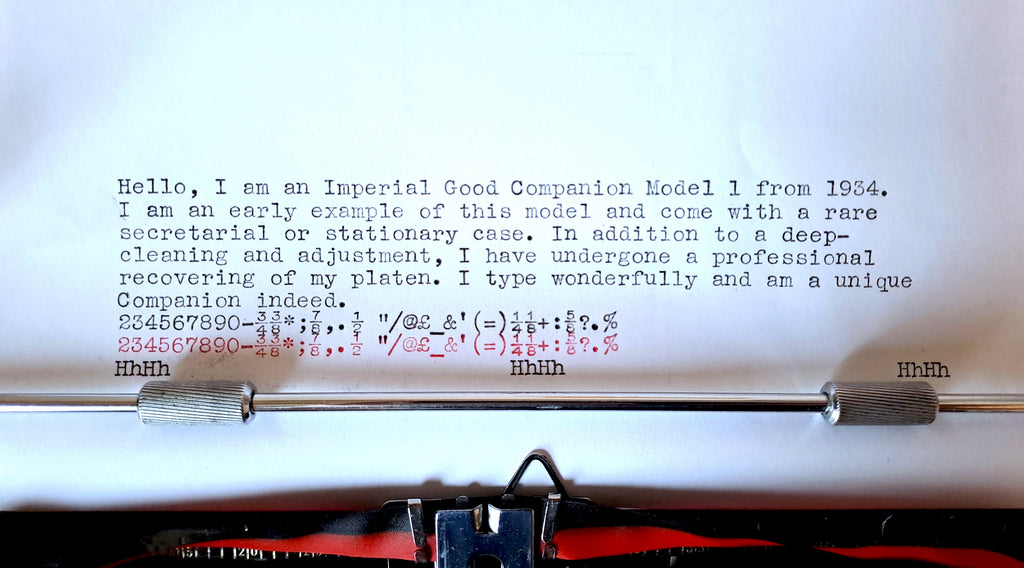 Hello, I am an Imperial Good Companion Model 1 from 1934.
I am an early example of this model and come with a rare
secretarial or stationary case. In addition to a deep-
cleaning and adjustment, I have undergone a professional
recovering of my platen. I type wonderfully and am a unique
Companion indeed.
234567890-¾⅜*;⅞,.½ "/@£_&'(=)¼⅛+:⅝?.%
234567890-¾⅜*;⅞,.½ "/@£_&'(=)¼⅛+:⅝?.%
HhHh HhHh HhHh